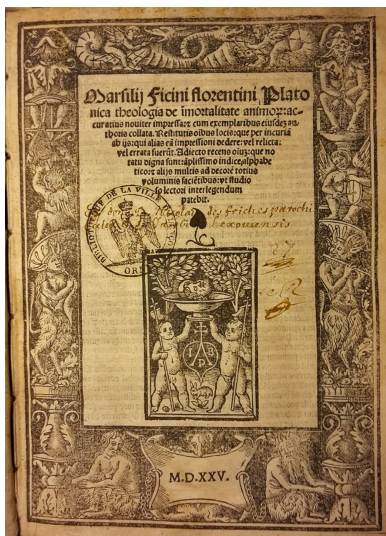 Marsilij Ficini florentini, Plato
nica theologia de īmortalitate animoꝝ: ac
curatius noviter impressa: et cum exemplaribus eiusdez au
thoris collata. Restitutis oībus locis: que per incuriā
ab ijs: qui alias eā impressioni dedere: vel relicta:
vel errata fuerūt. Adiecto recens oīuz: que no
tatu digna sunt: āplissimo indice, alphabe
tico: et alijs multis ad decorē totius
voluminis faciētibus: vt studio
so lectori inter legendum
patebit.
DE LA VILLE
dono Nicolai des friches parochi
I B
M.D.XXV.